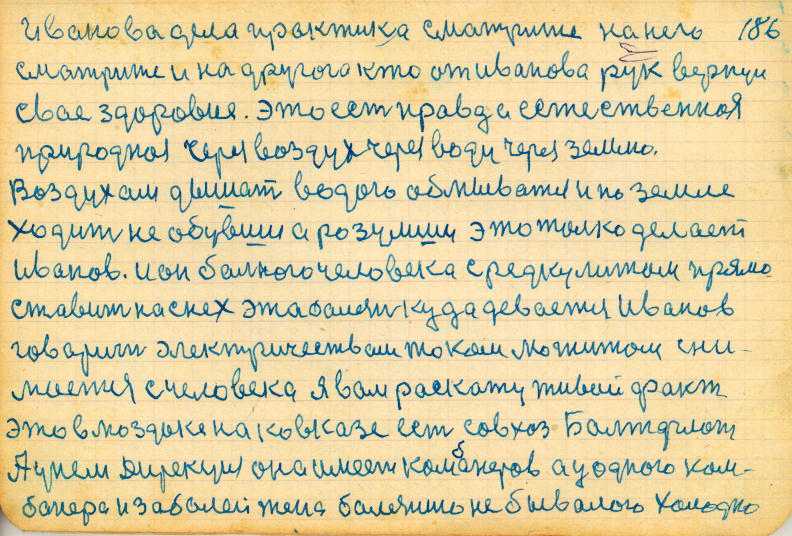 Иванова дела практика сматрите на него 186
сматрите и на другога кто от иванова рук вернул
свае здоровие. Это ест правда естественная
природная через воздух через воду через землю.
Воздухам дышат водою обмыватся и по земле
ходит не обувши а розумши это толко делает
Иванов. и он балного человека средкулитом прямо
ставит на снех эта балезн куда девается Иванов
говарит электричествам током магнитом сни-
мается с человека я вам раскажу живой факт
это в моздоке на ковказе ест совхоз Балтфлот
она имеет комбанеров а у одного ком-
банера и заболей жена не бывалого холодно